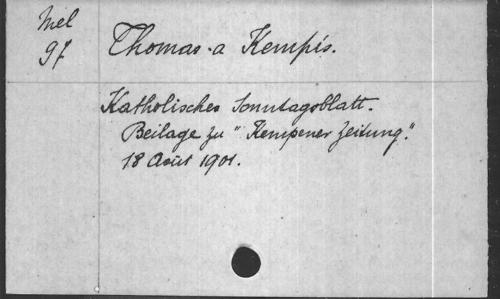 Mel
97
Thomas a Kempis.
Katholisches Sonntagsblatt.
Beilage zu "Kempener Zeitung".
18 Août 1901.